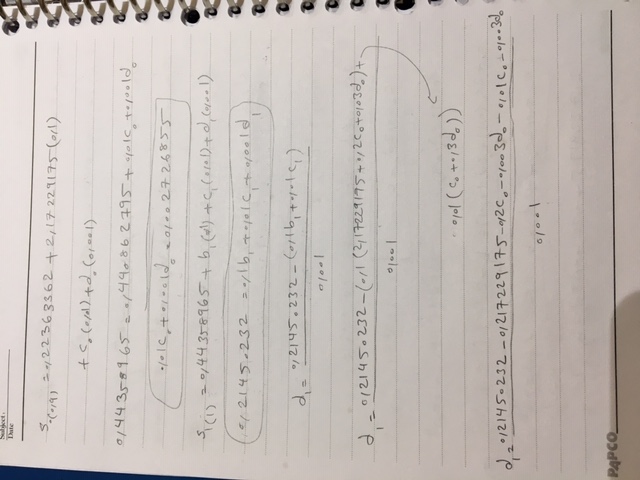 Subject:
Date
S₀(0,9) = 0,22363362 + 2,17229175(0,1)
+ c₀(0,01) + d₀(0,001)
0,44358965 = 0,440862795 + 0,01c₀ + 0,001d₀
0,01c₀ + 0,001d₀ = 0,002726855
S₁(1) = 0,44358965 + b₁(0,1) + c₁(0,01) + d₁(0,001)
0,21450232 = 0,1b₁ + 0,01c₁ + 0,001d₁
d₁ = 0,21450232 - (0,1b₁ + 0,01c₁)
0,001
d₁ = 0,21450232 - (0,1(2,17229175 + 0,2c₀ + 0,03d₀) +
0,001
0,01(c₀ + 0,3d₀))
d₁ = 0,21450232 - 0,217229175 - 0,2c₀ - 0,003d₀ - 0,01c₀ - 0,003d₀
0,001
PAPCO